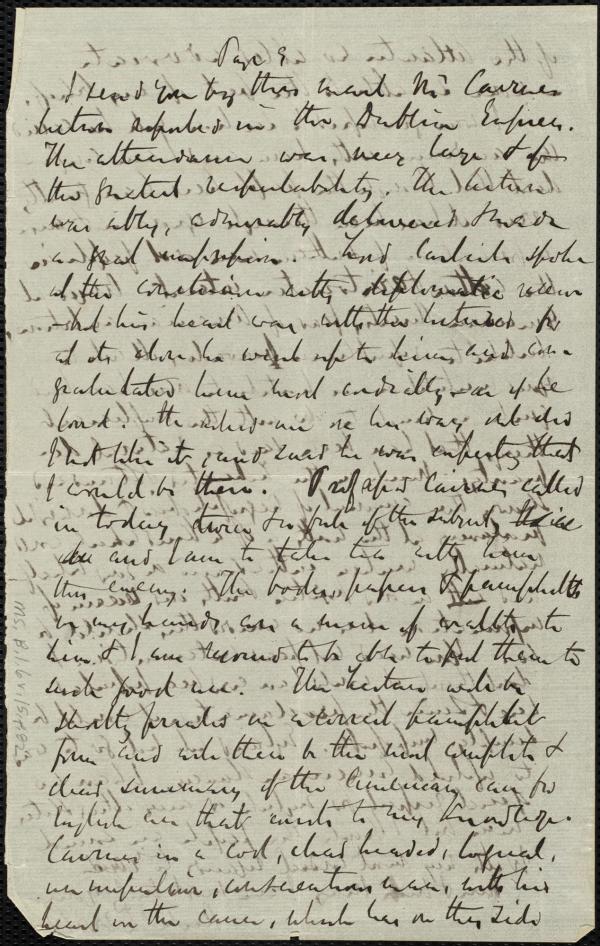 Page 3
I send you by this mail Mr Cairnes
lecture reported in the Dublin Express.
The attendance was very large & of
the greatest respectability. The lecture
was ably, admirably delivered & made
a great impression. Lord Carlisle spoke
at the conclusion with diplomatic
but his heart was with the lecturer for
at its close he went up to him and con-
gratulated him most cordially - as if he
loved. He asked me on his way out did
I not like it, and said he was expecting that
I would be there. Professor Cairnes called
in today twice to speak of the subject
and I am to take tea with him
this evening. The books, papers & pamphlets
in my hands are a mine of wealth to
him & I am rejoiced to be able to put them to
such good use. The lecture will be
shortly printed in a correct pamphlet
form and will then be the most complete &
clear summary of the American case for
English use that exists to my knowledge.
Cairnes is a cool, clear headed, logical,
unimpulsive, conscientious man, with his
heart in the cause, which has on this side
MS B.1.6 v.